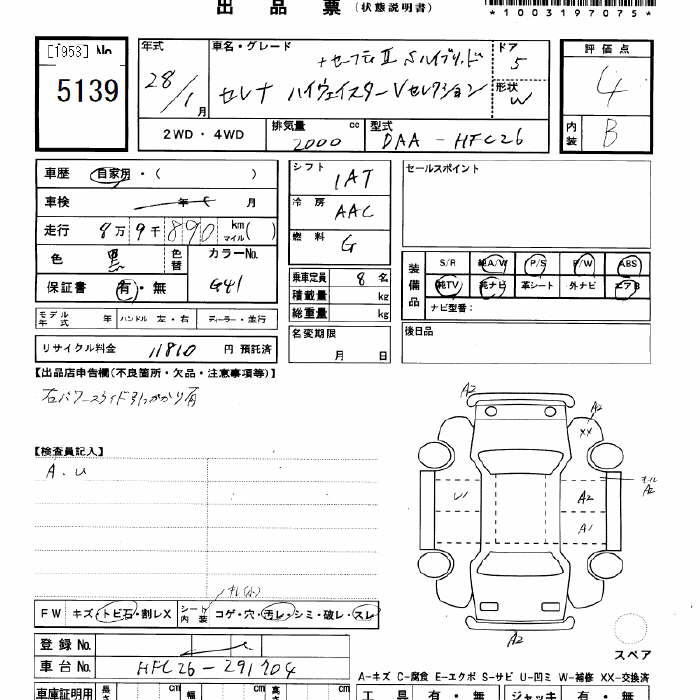 出品票 (状態説明書)
*1003197075*
[1953] No.
5139
年式
28/1月
車名・グレード
+セーフティⅡ Sハイブリッド
セレナ ハイウェイスターVセレクション
ドア
5
形状
W
評価点
4
内装
B
2WD・4WD
排気量 2000 cc
型式 DAA-HFC26
車歴 自家用・( )
車検 年 月
走行 8万9千890 km マイル( )
色 黒
色替
カラーNo.
G41
保証書 有・無
シフト
IAT
冷房
AAC
燃料
G
乗車定員 8名
積載量 kg
総重量 kg
セールスポイント
装備品
S/R 純A/W P/S P/W ABS
純TV 純ナビ 革シート 外ナビ エアB
ナビ型番:
モデル年式 年 ハンドル 左・右 ディーラー・並行
名変期限
月 日
後日品
リサイクル料金 11810 円 預託済
【出品店申告欄(不良箇所・欠品・注意事項等)】
右パワースライド引っかかり有
【検査員記入】
A.U
A2
A2
XX
A2
U1
A2
A1
A2
スペア
FW キズ・トビ石・割レX
シート内装 コゲ・穴・汚レ・シミ・破レ・スレ
登録 No.
車台 No. HFC26-291704
A-キズ C-腐食 E-エクボ S-サビ U-凹ミ W-補修 XX-交換済
車庫証明用
長さ cm 幅 cm 高さ cm
工具 有・無 ジャッキ 有・無